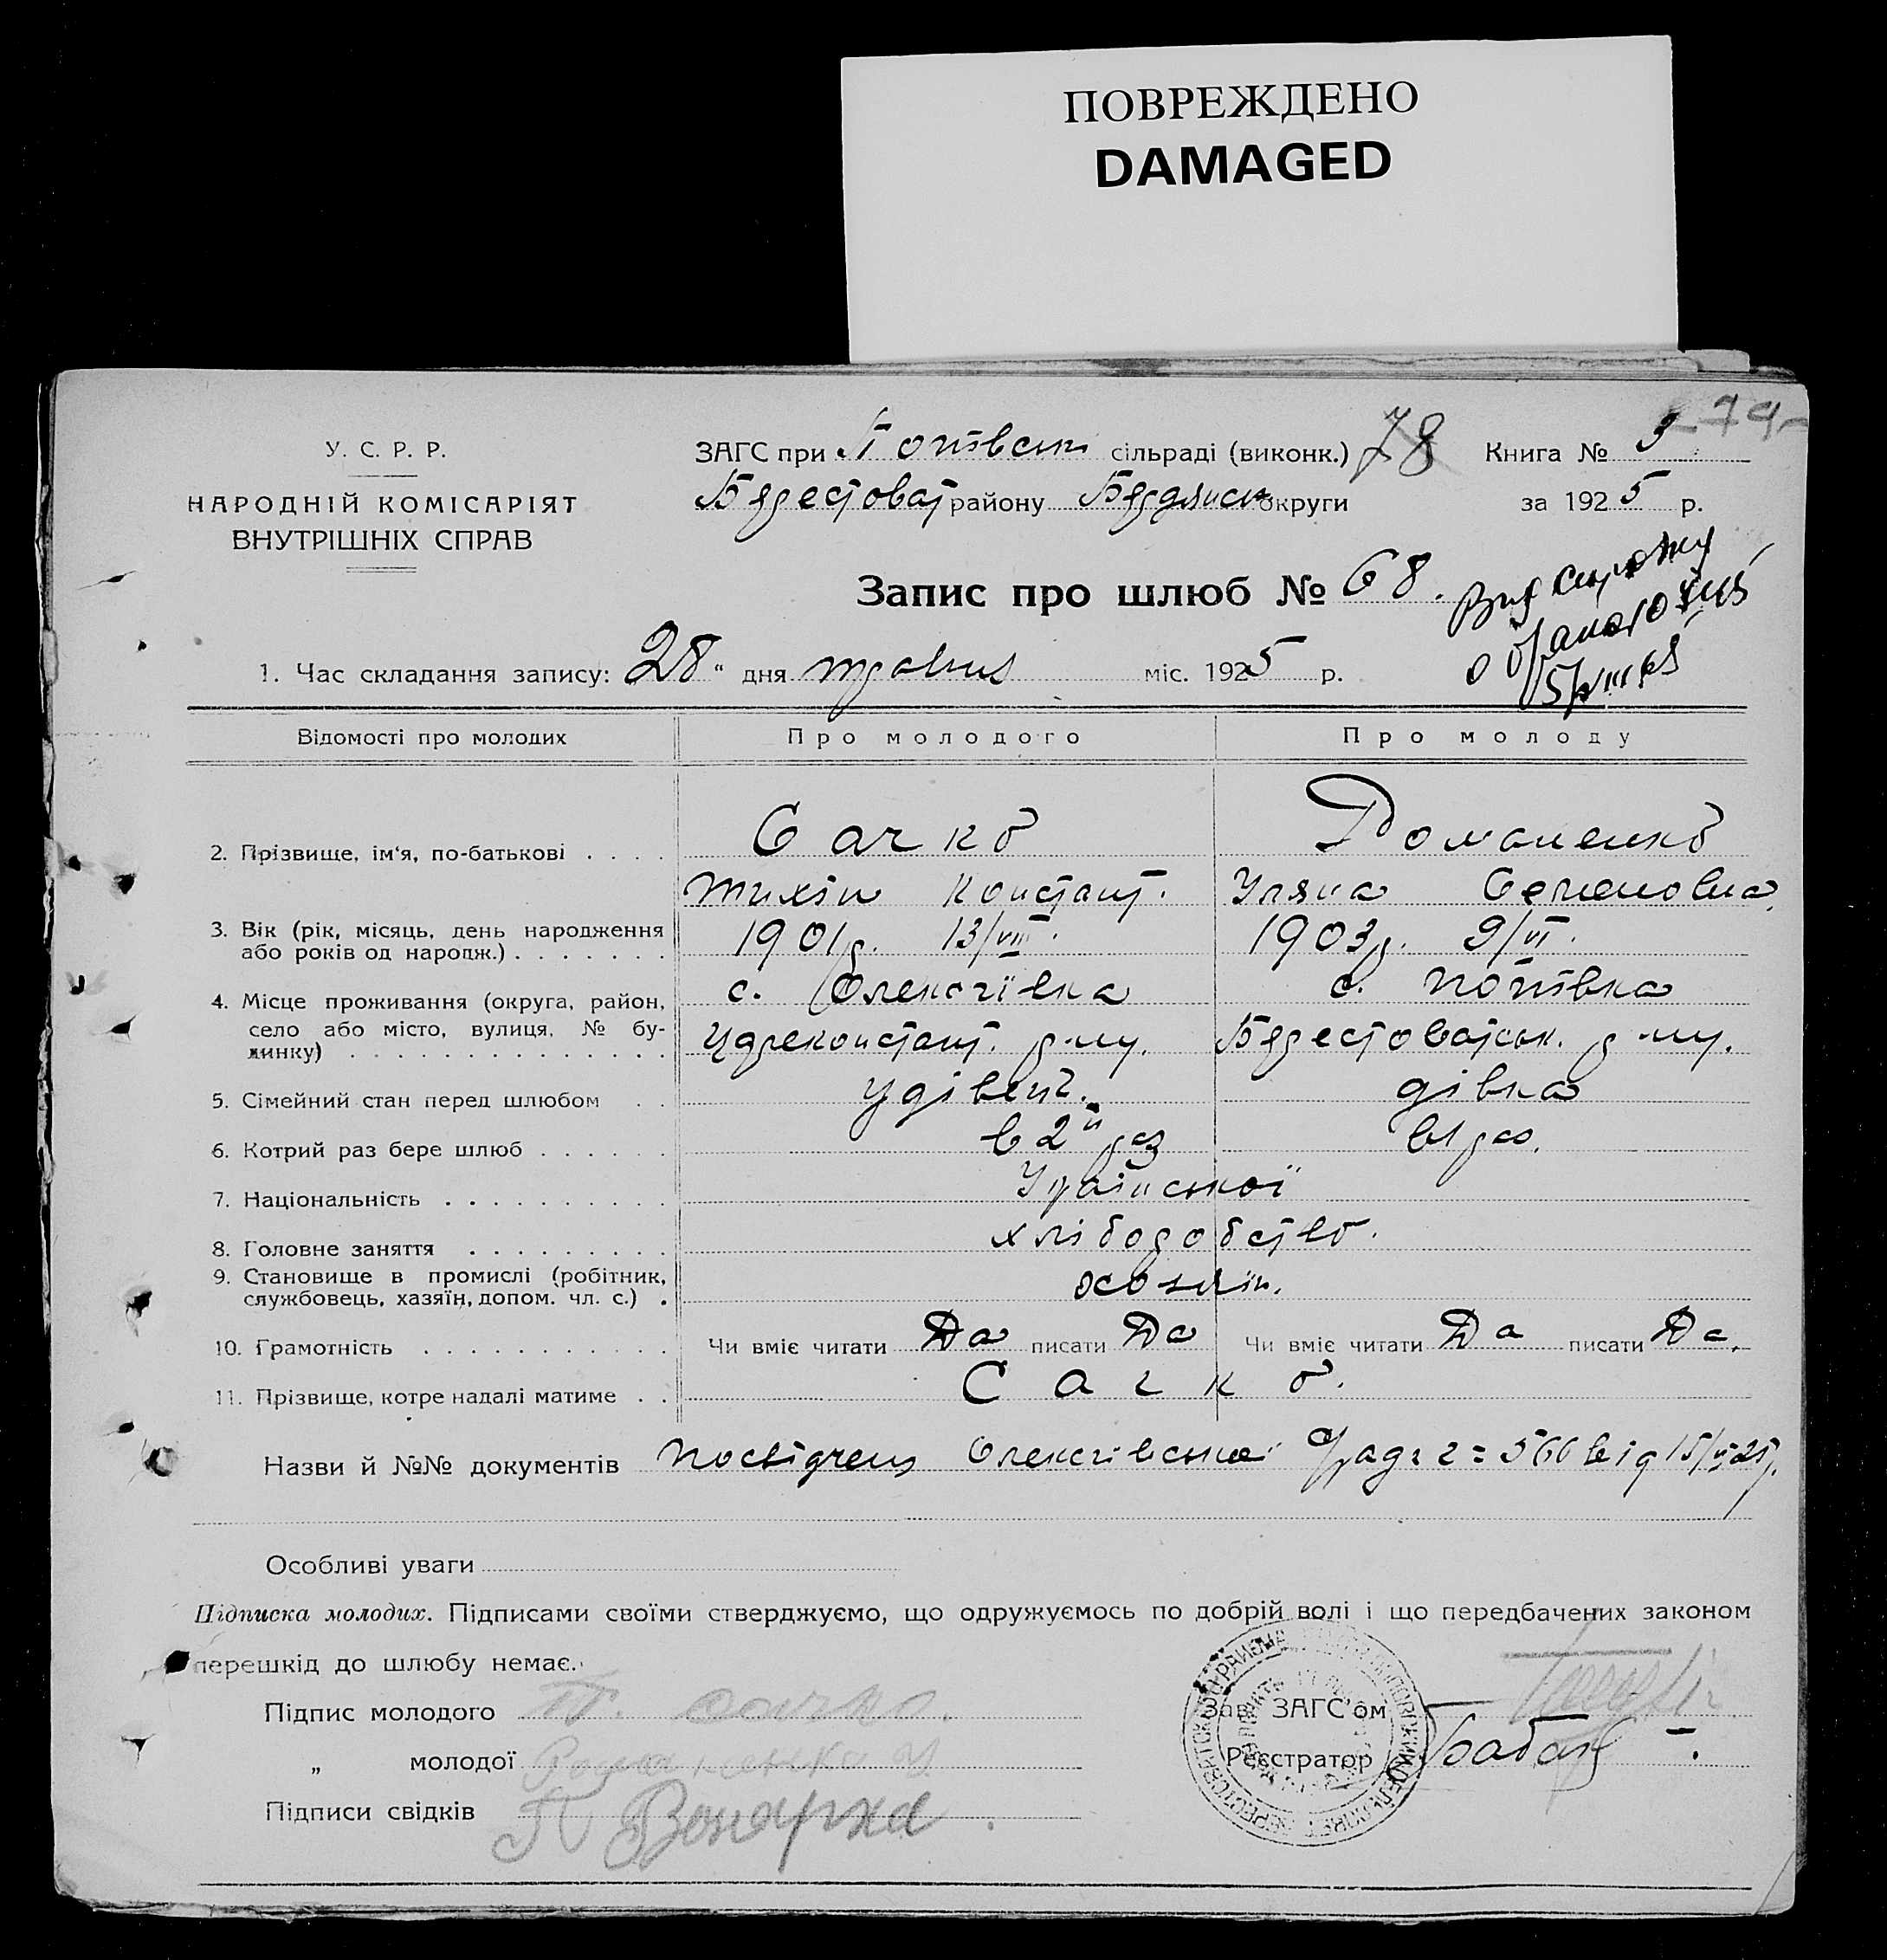 ПОВРЕЖДЕНО
DAMAGED
79
У. С. Р. Р.
НАРОДНІЙ КОМІСАРІЯТ
ВНУТРІШНІХ СПРАВ
ЗАГС при Попівськ сільраді (виконк.) 78 Книга № 3
Берестоват району Бердянськ округи за 1925 р.
Запис про шлюб № 68.
1. Час складання запису: 28 " дня травня міс. 1925 р.
Відомості про молодих Про молодого Про молоду
2. Прізвище, ім'я, по-батькові Сачко Романенко
Тихін Констант. Уляна Семеновна
3. Вік (рік, місяць, день народження 1901р. 13/VIII. 1903р. 9/VI.
або років од народж.)
4. Місце проживання (округа, район, с. Олексіївка с. Попівка
село або місто, вулиця, № бу-
динку) Цареконстант. р-ну. Берестоватськ. р-ну.
5. Сімейний стан перед шлюбом удівець. дівка
6. Котрий раз бере шлюб в 2й раз в 1 раз.
7. Національність Української
8. Головне заняття хліборобство.
9. Становище в промислі (робітник,
службовець, хазяїн, допом. чл. с.)
10. Грамотність Чи вміє читати Да писати Да Чи вміє читати Да писати Да.
11. Прізвище, котре надалі матиме Сачко.
Назви й №№ документів Посвідчен Олексіївської 566 від 15/V 25р.
Особливі уваги
Підписка молодих. Підписами своїми стверджуємо, що одружуємось по добрій волі і що передбачених законом
перешкід до шлюбу немає.
Підпис молодого Т. Сачко. Зав. ЗАГС'ом
" молодої Романенко У Реєстратор
Підписи свідків П